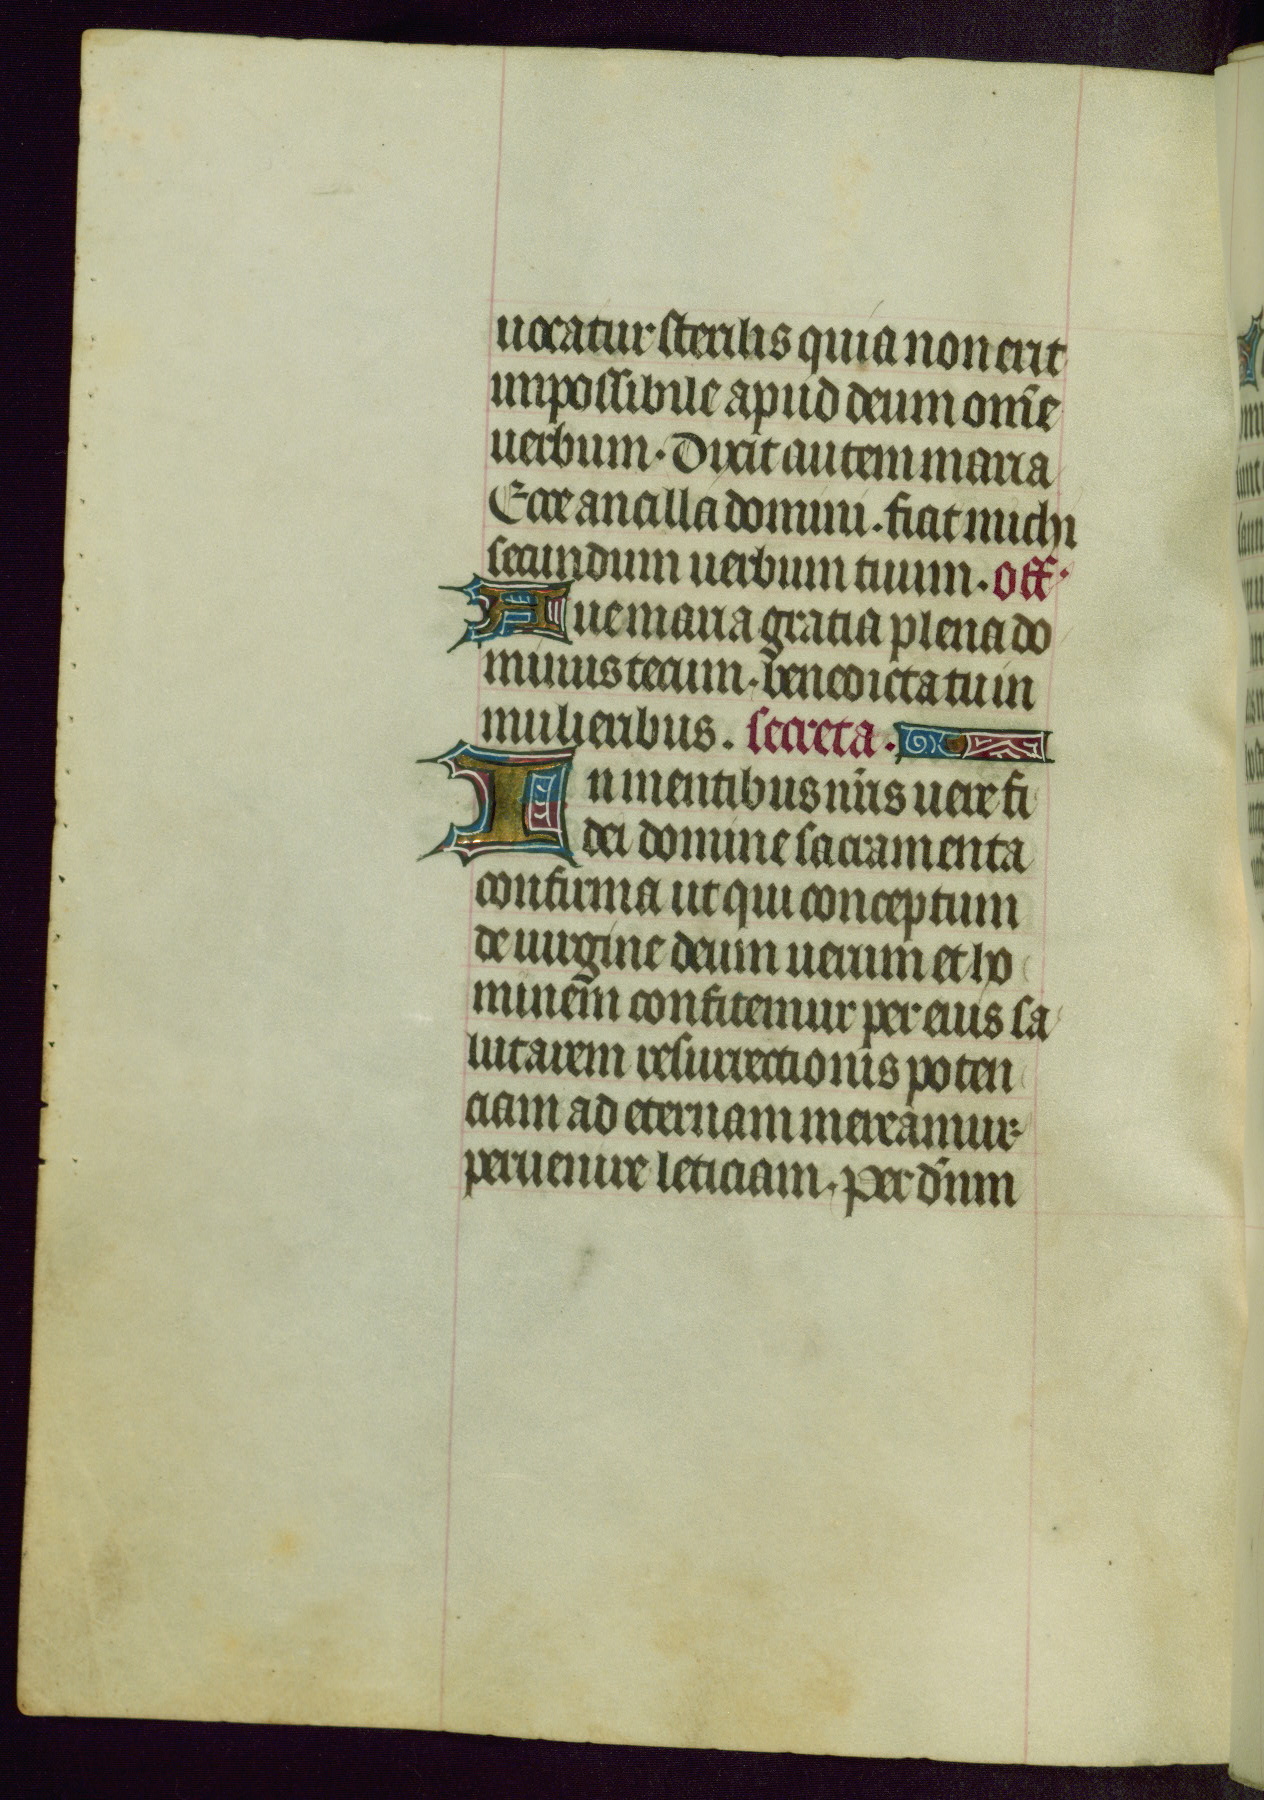 uocatur sterilis quia non erit
impossibile apud deum om̄e
uerbum. Dixit autem maria
Ecce ancilla domini. fiat michi
secundum uerbum tuum. off.
Aue maria gratia plena do
minus tecum. benedicta tu in
mulieribus. secreta.
In mentibus nr̄is uere fi
dei domine sacramenta
confirma ut qui conceptum
de uirgine deum uerum et ho
minem confitemur per eius sa
lutarem resurrectionis poten
ciam ad eternam mereamur
peruenire leticiam. Per dn̄m